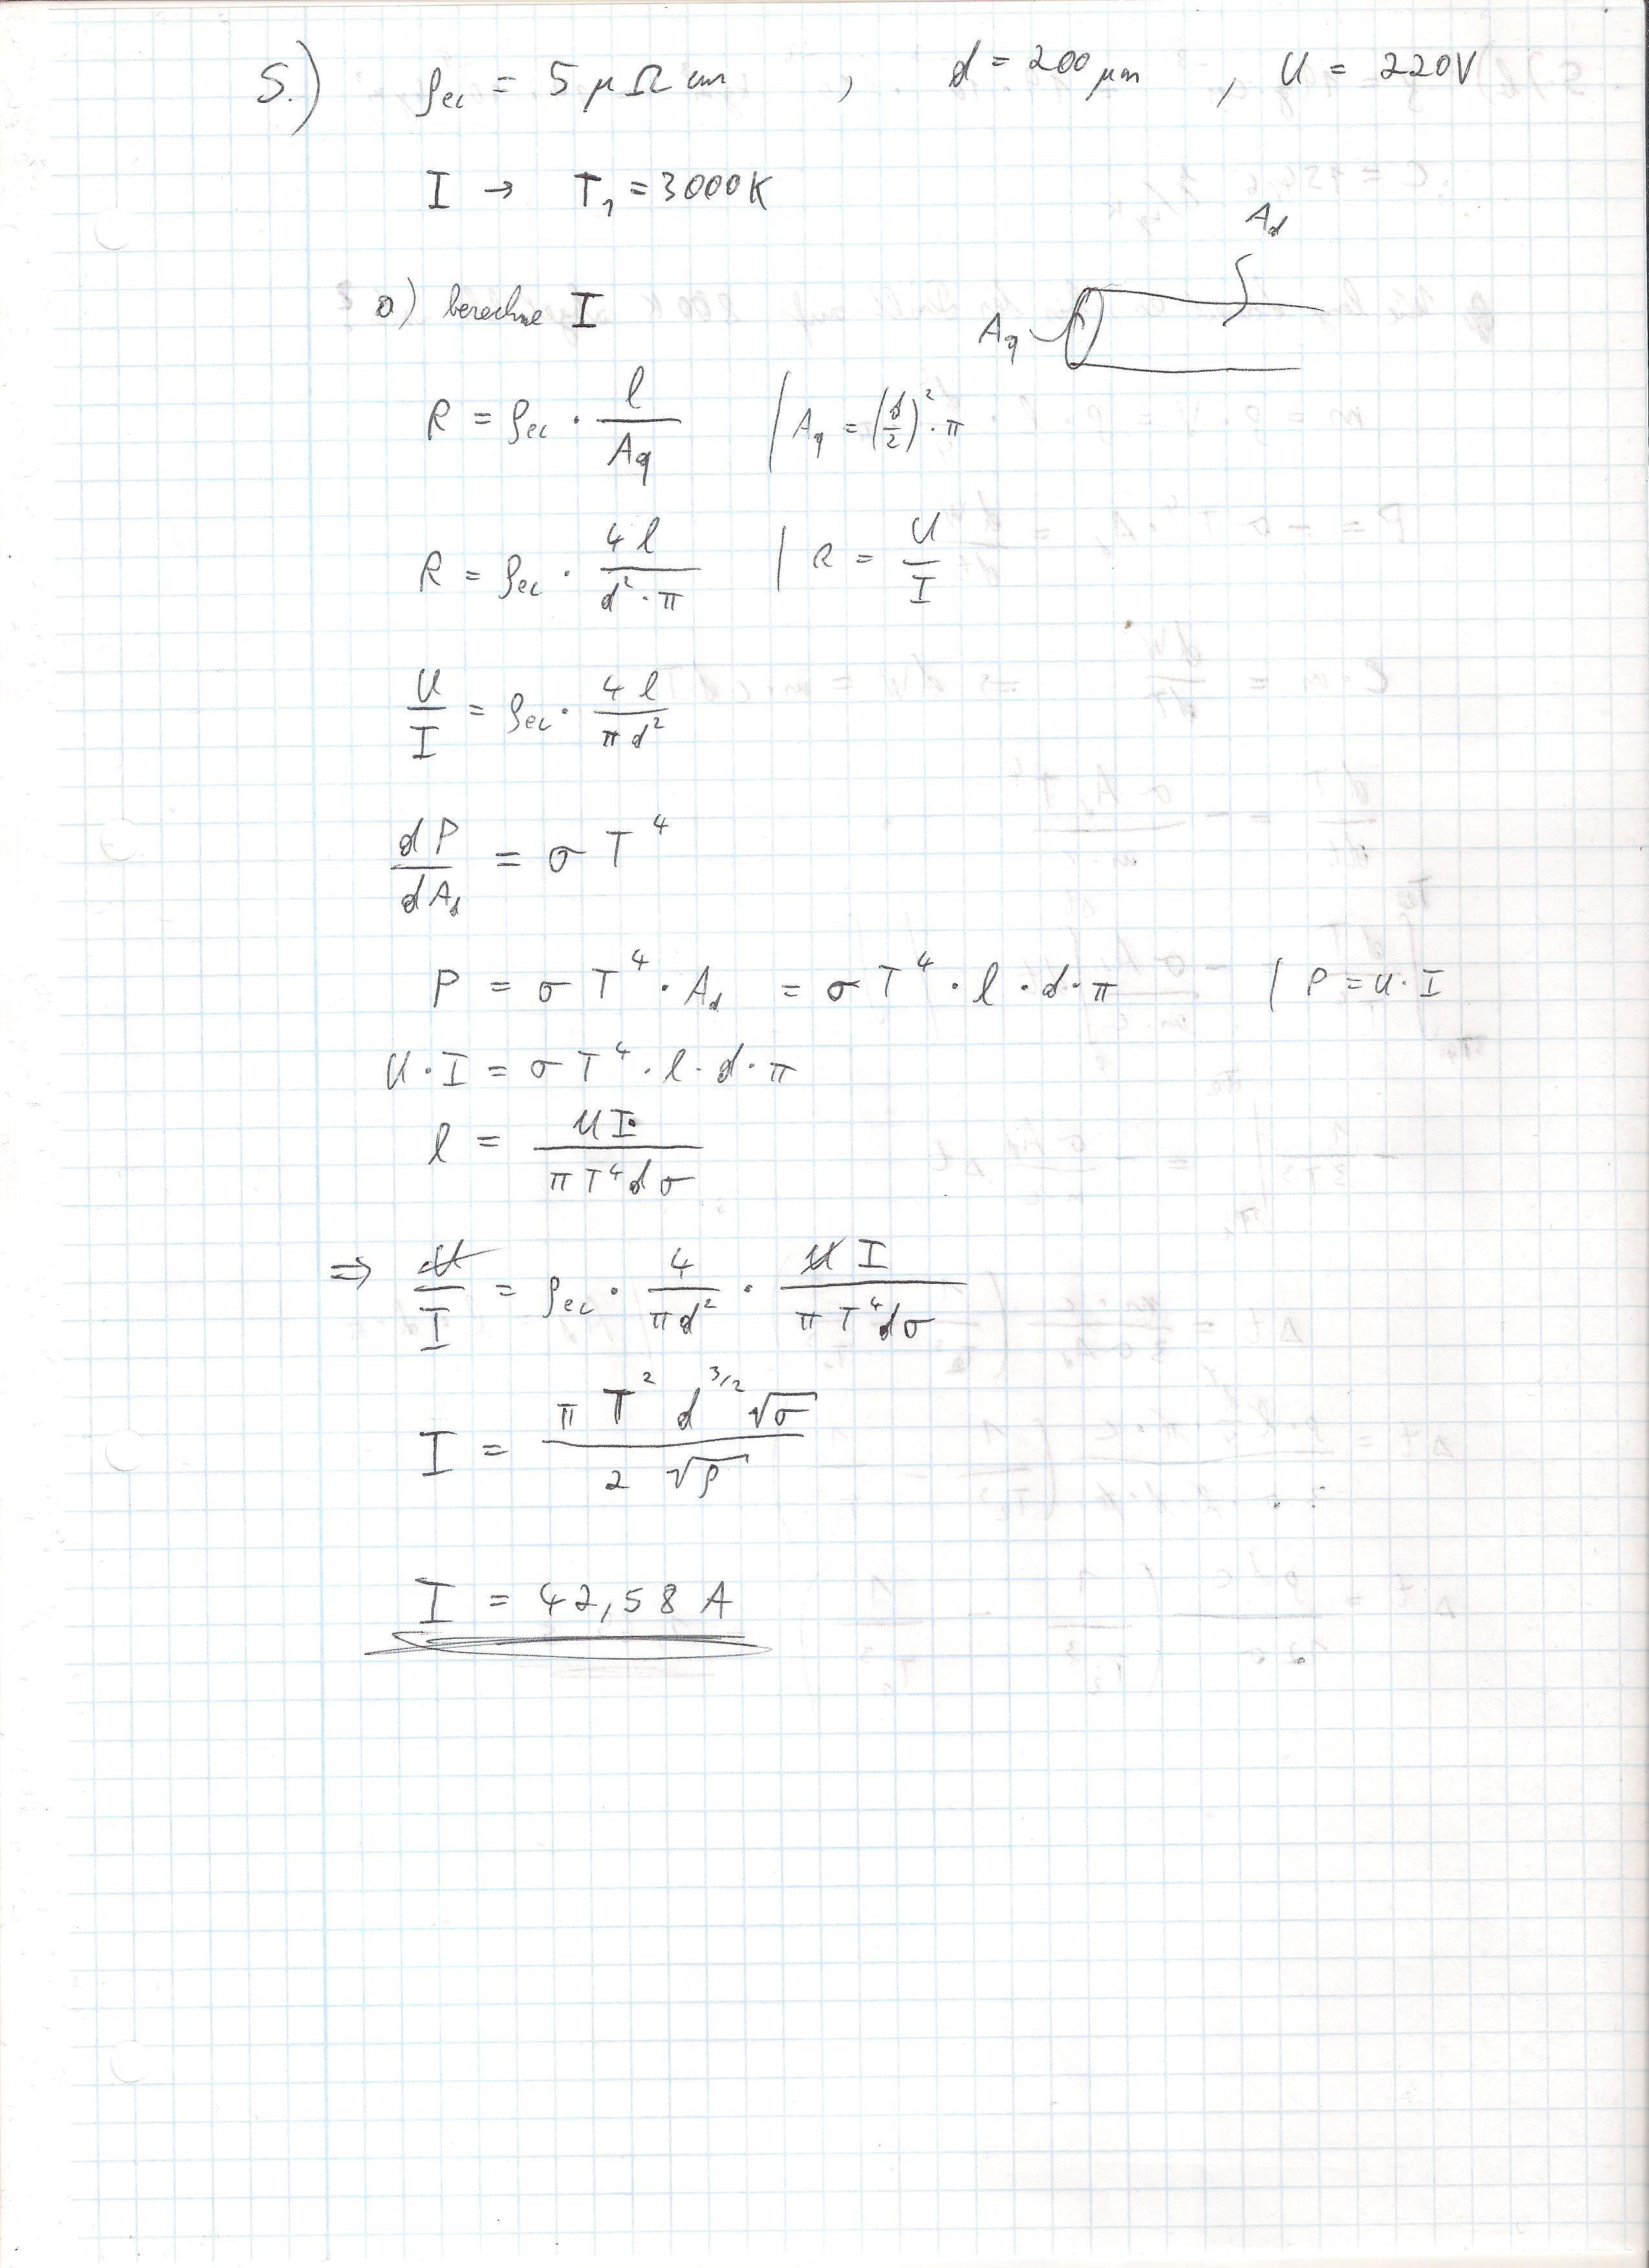 5.) ρec = 5 μ Ω cm , d = 200 μm , U = 220V
I → T1 = 3000K
Ad
a) berechne I
Aq
R = ρec · l/Aq | Aq = (d/2)² · π
R = ρec · 4 l/(d² · π) | R = U/I
U/I = ρec · 4 l/(π d²)
dP/dAd = σ T⁴
P = σ T⁴ · Ad = σ T⁴ · l · d · π | P = U · I
U · I = σ T⁴ · l · d · π
l = U I/(π T⁴ d σ)
⇒ U/I = ρec · 4/(π d²) · U I/(π T⁴ d σ)
I = π T² d^3/2 √σ/(2 √ρ)
I = 42,58 A